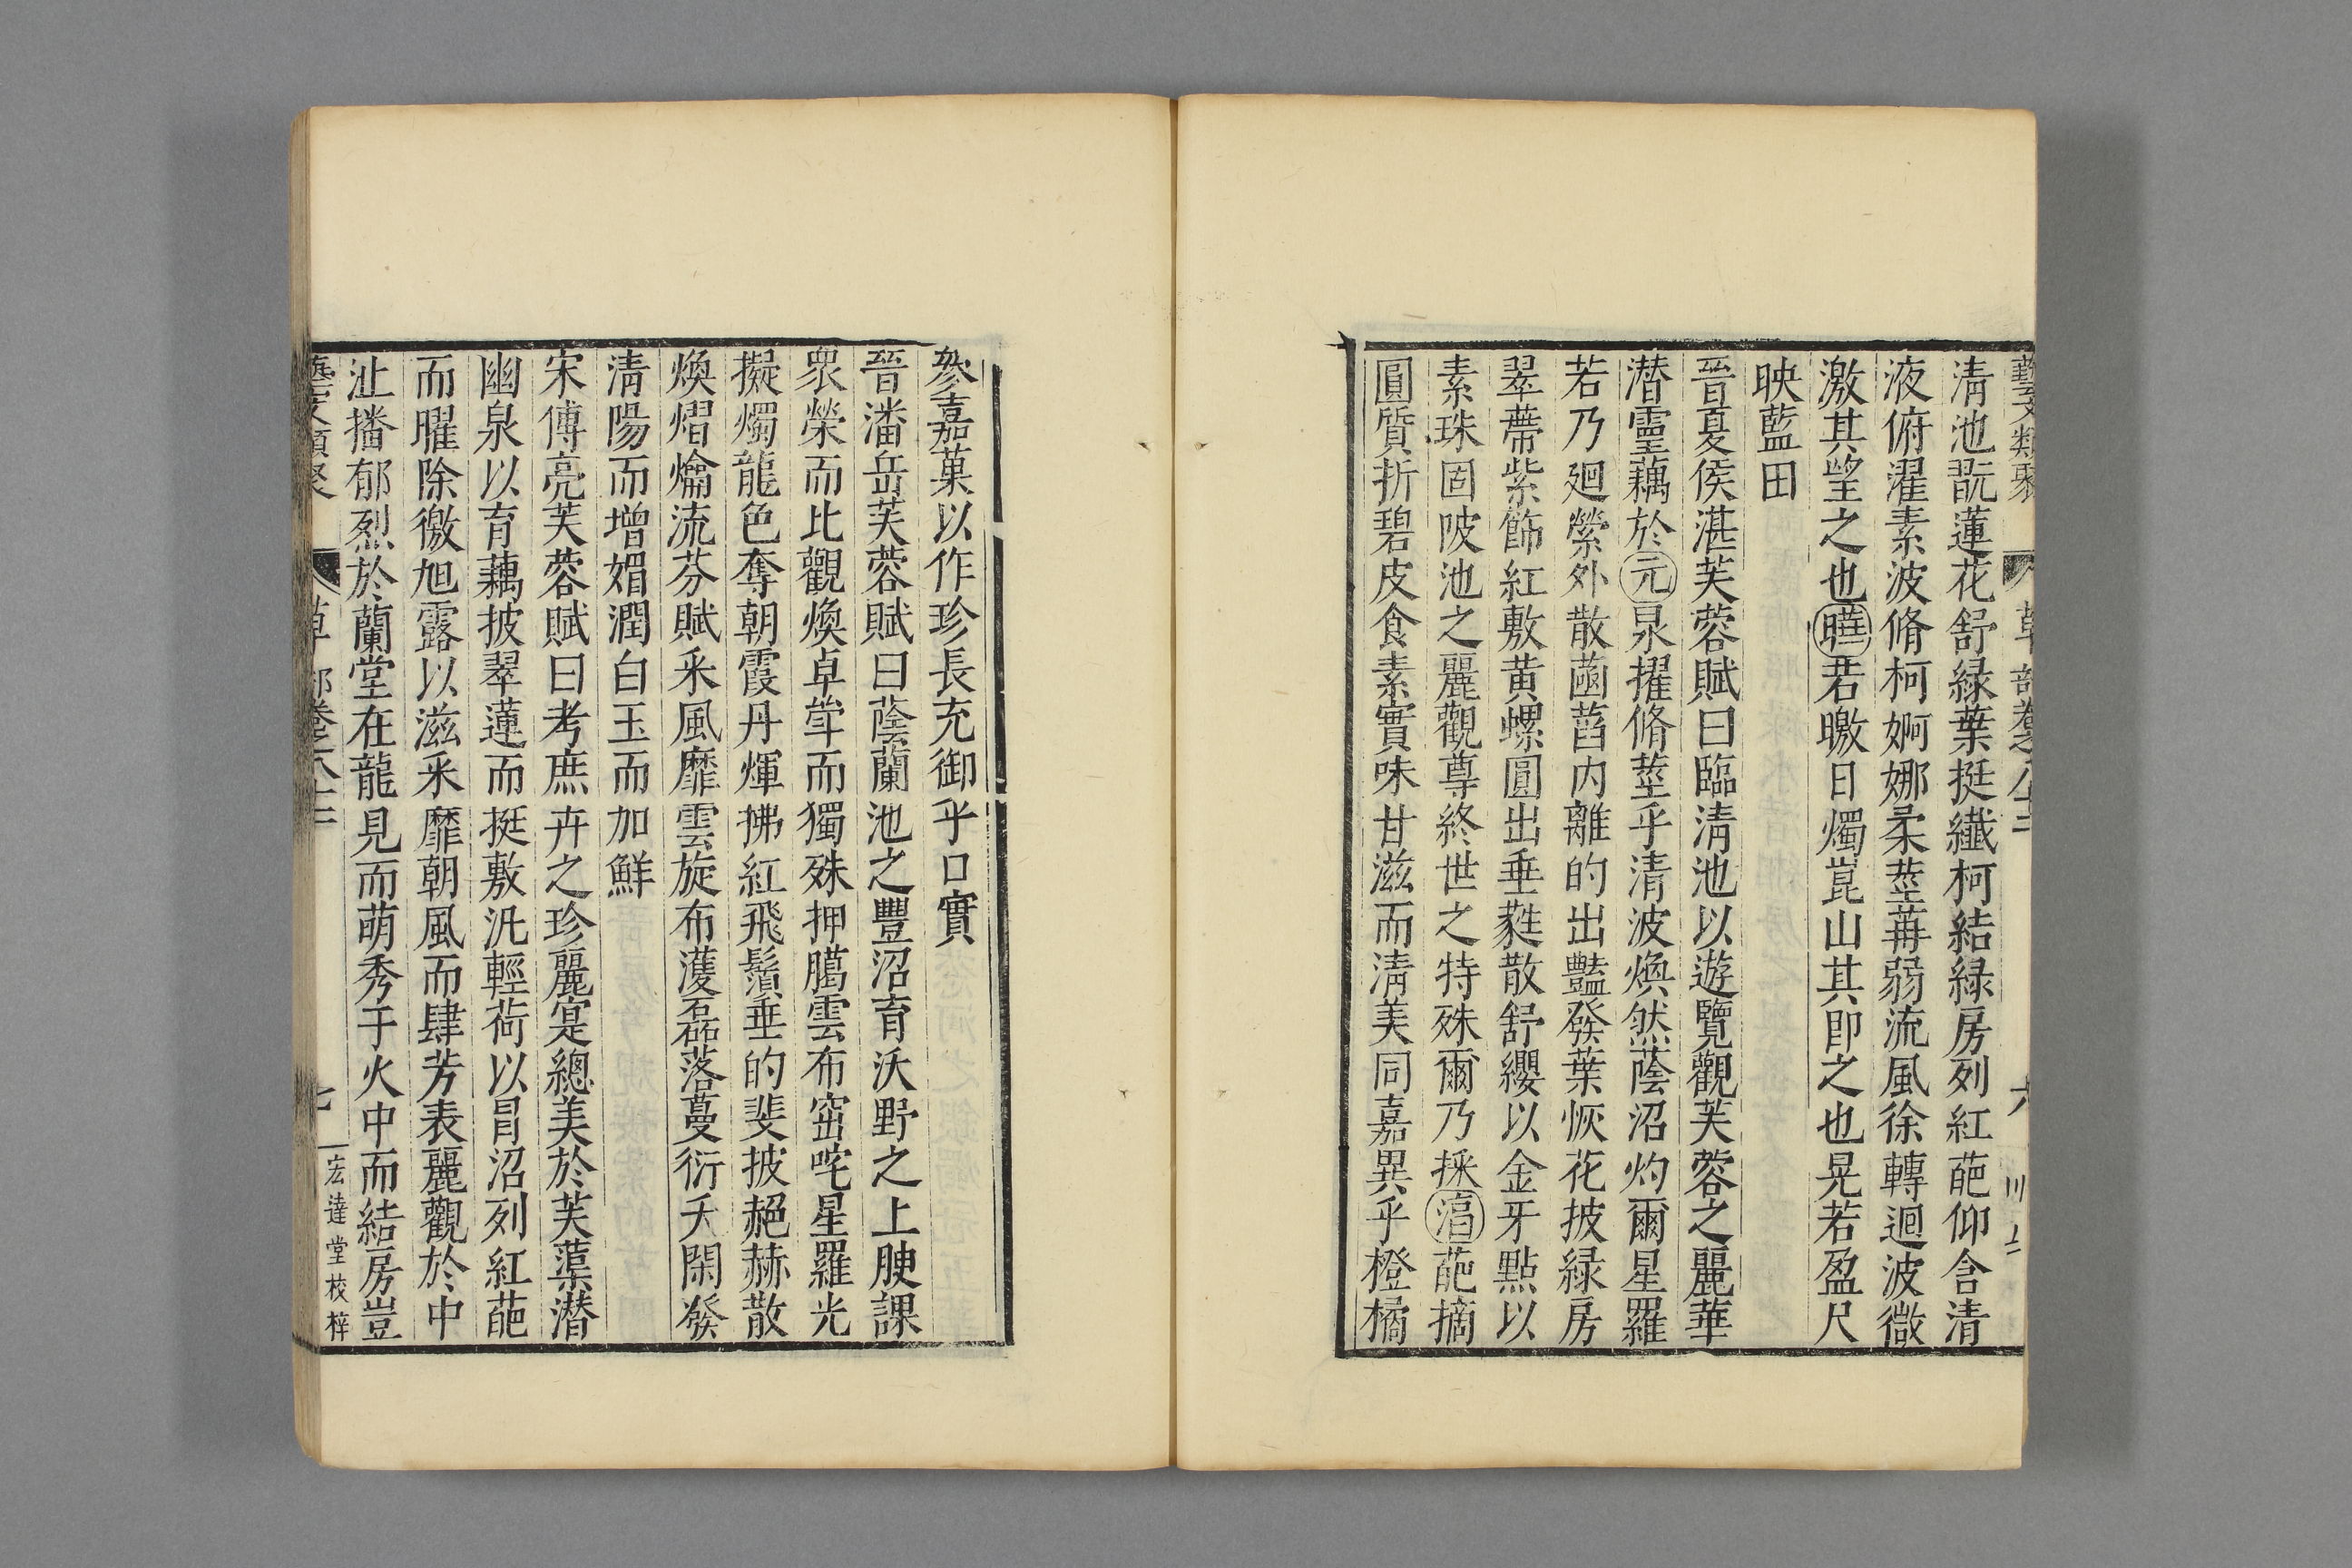 藝文類聚 草部卷之八十二 六
清池翫蓮花舒緑葉挺纖柯結緑房列紅葩仰含清
液俯濯素波脩柯婀娜柔莖苒弱流風徐轉迴波微
激其望之也曄若皦日燭崑山其即之也晃若盈尺
映藍田
晉夏侯湛芙蓉賦曰臨清池以遊覽觀芙蓉之麗華
潜靈藕於元泉擢脩莖乎清波煥然蔭沼灼爾星羅
若乃廻縈外散菡萏内離的出豔發葉恢花披緑房
翠蔕紫飾紅敷黄螺圓出垂蕤散舒纓以金牙點以
素珠固陂池之麗觀尊終世之特殊爾乃採淊葩摘
圓質折碧皮食素實味甘滋而清美同嘉異乎橙橘
參嘉菓以作珍長充御乎口實
晉潘岳芙蓉賦曰蔭蘭池之豐沼育沃野之上腴課
衆榮而比觀煥卓犖而獨殊押臈雲布窋咤星羅光
擬燭龍色奪朝霞丹煇拂紅飛鬚垂的斐披赩赫散
煥熠爚流芬賦采風靡雲旋布濩磊落蔓衍夭閑發
清陽而增媚潤白玉而加鮮
宋傅亮芙蓉賦曰考庶卉之珍麗寔總美於芙蕖潜
幽泉以育藕披翠蓮而挺敷汎輕荷以冒沼列紅葩
而曜除徼旭露以滋采靡朝風而肆芳表麗觀於中
沚播郁烈於蘭堂在龍見而萌秀于火中而結房豈
藝文類聚 草部卷八十二 七 宏達堂校梓